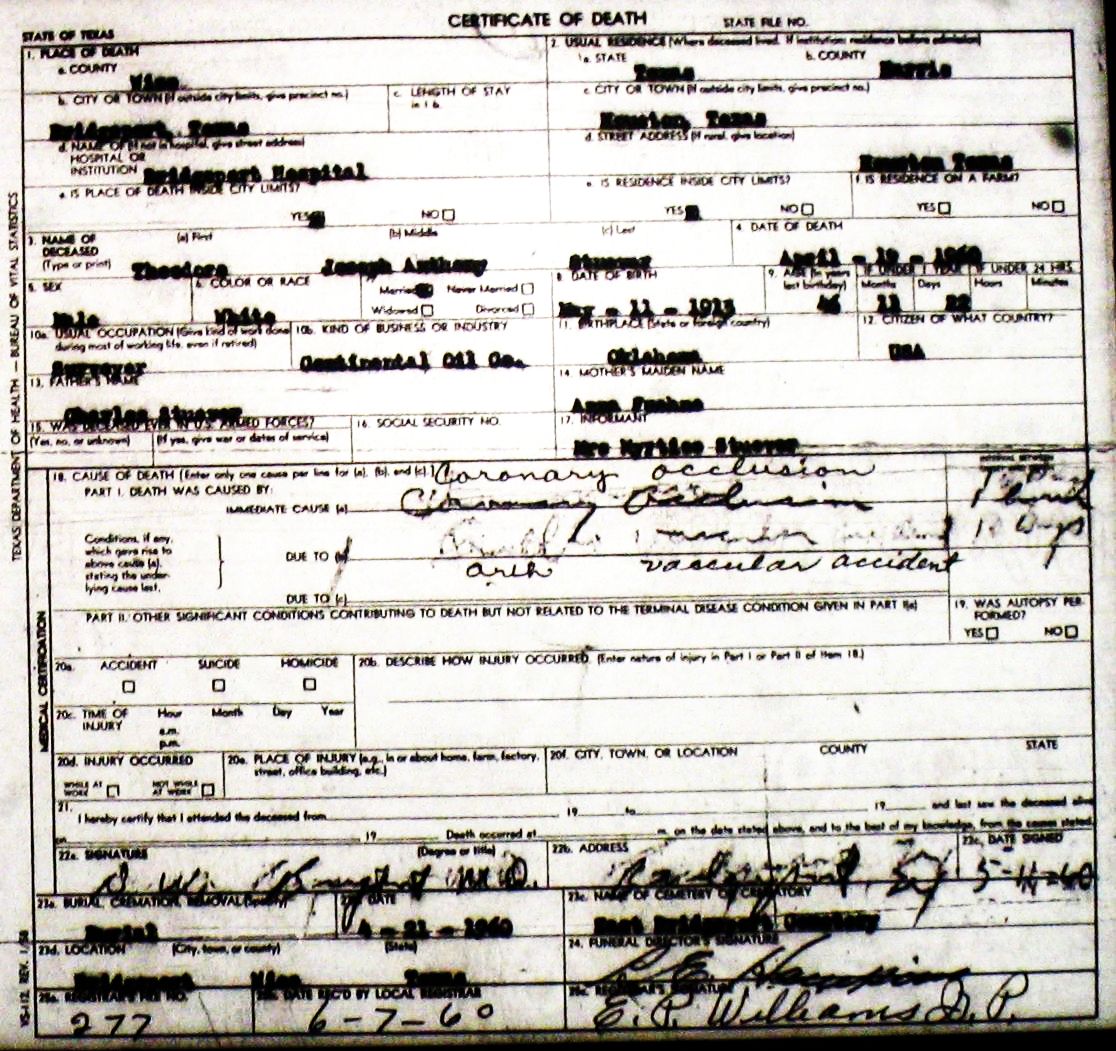 CERTIFICATE OF DEATH STATE FILE NO.
STATE OF TEXAS
1. PLACE OF DEATH
a. COUNTY
Wise
2. USUAL RESIDENCE (Where deceased lived. If institution: residence before admission)
a. STATE b. COUNTY
Texas Harris
b. CITY OR TOWN (If outside city limits, give precinct no.)
Bridgeport, Texas
c. LENGTH OF STAY
in 1 b.
c. CITY OR TOWN (If outside city limits, give precinct no.)
Houston, Texas
d. NAME OF (If not in hospital, give street address)
HOSPITAL OR
INSTITUTION Bridgeport Hospital
d. STREET ADDRESS (If rural, give location)
Houston Texas
e. IS PLACE OF DEATH INSIDE CITY LIMITS?
YES NO
e. IS RESIDENCE INSIDE CITY LIMITS?
YES NO
f. IS RESIDENCE ON A FARM?
YES NO
3. NAME OF
DECEASED
(Type or print)
(a) First (b) Middle (c) Last
Theodore Joseph Anthony Stuever
4. DATE OF DEATH
April - 19 - 1960
5. SEX
Male
6. COLOR OR RACE
White
Married Never Married
Widowed Divorced
8. DATE OF BIRTH
May - 11 - 1913
9. AGE (In years
last birthday)
46
IF UNDER 1 YEAR IF UNDER 24 HRS.
Months Days Hours Minutes
11 22
10a. USUAL OCCUPATION (Give kind of work done
during most of working life, even if retired)
Surveyor
10b. KIND OF BUSINESS OR INDUSTRY
Continental Oil Co.
11. BIRTHPLACE (State or foreign country)
Oklahoma
12. CITIZEN OF WHAT COUNTRY?
USA
13. FATHER'S NAME
Charles Stuever
14. MOTHER'S MAIDEN NAME
Anna
15. WAS DECEASED EVER IN U.S. ARMED FORCES?
(Yes, no, or unknown) (If yes, give war or dates of service)
16. SOCIAL SECURITY NO.
17. INFORMANT
Mrs Myrtice Stuever
18. CAUSE OF DEATH [Enter only one cause per line for (a), (b), and (c).] Coronary occlusion
PART I. DEATH WAS CAUSED BY:
IMMEDIATE CAUSE (a) Coronary Occlusion
Conditions, if any,
which gave rise to
above cause (a),
stating the under-
lying cause last.
DUE TO (b)
vascular accident
DUE TO (c)
PART II. OTHER SIGNIFICANT CONDITIONS CONTRIBUTING TO DEATH BUT NOT RELATED TO THE TERMINAL DISEASE CONDITION GIVEN IN PART I(a)
19. WAS AUTOPSY PER-
FORMED?
YES NO
20a. ACCIDENT SUICIDE HOMICIDE
20b. DESCRIBE HOW INJURY OCCURRED. (Enter nature of injury in Part I or Part II of Item 18.)
20c. TIME OF
INJURY
Hour Month Day Year
a.m.
p.m.
20d. INJURY OCCURRED
WHILE AT
WORK
NOT WHILE
AT WORK
20e. PLACE OF INJURY (e.g., in or about home, farm, factory,
street, office building, etc.)
20f. CITY, TOWN, OR LOCATION COUNTY STATE
21.
I hereby certify that I attended the deceased from 19 to 19 and last saw the deceased alive
on 19 Death occurred at m. on the date stated above, and to the best of my knowledge, from the causes stated.
22a. SIGNATURE (Degree or title)
M.D.
22b. ADDRESS
22c. DATE SIGNED
5-11-60
23a. BURIAL, CREMATION, REMOVAL (Specify)
Burial
23b. DATE
4 - 21 - 1960
23c. NAME OF CEMETERY OR CREMATORY
East Bridgeport Cemetery
23d. LOCATION (City, town, or county) (State)
Bridgeport Wise Texas
24. FUNERAL DIRECTOR'S SIGNATURE
25a. REGISTRAR'S FILE NO.
277
25b. DATE REC'D BY LOCAL REGISTRAR
6-7-60
25c. REGISTRAR'S SIGNATURE
E. P. Williams J. P.
TEXAS DEPARTMENT OF HEALTH — BUREAU OF VITAL STATISTICS
MEDICAL CERTIFICATION
VS-112 REV. 1/58